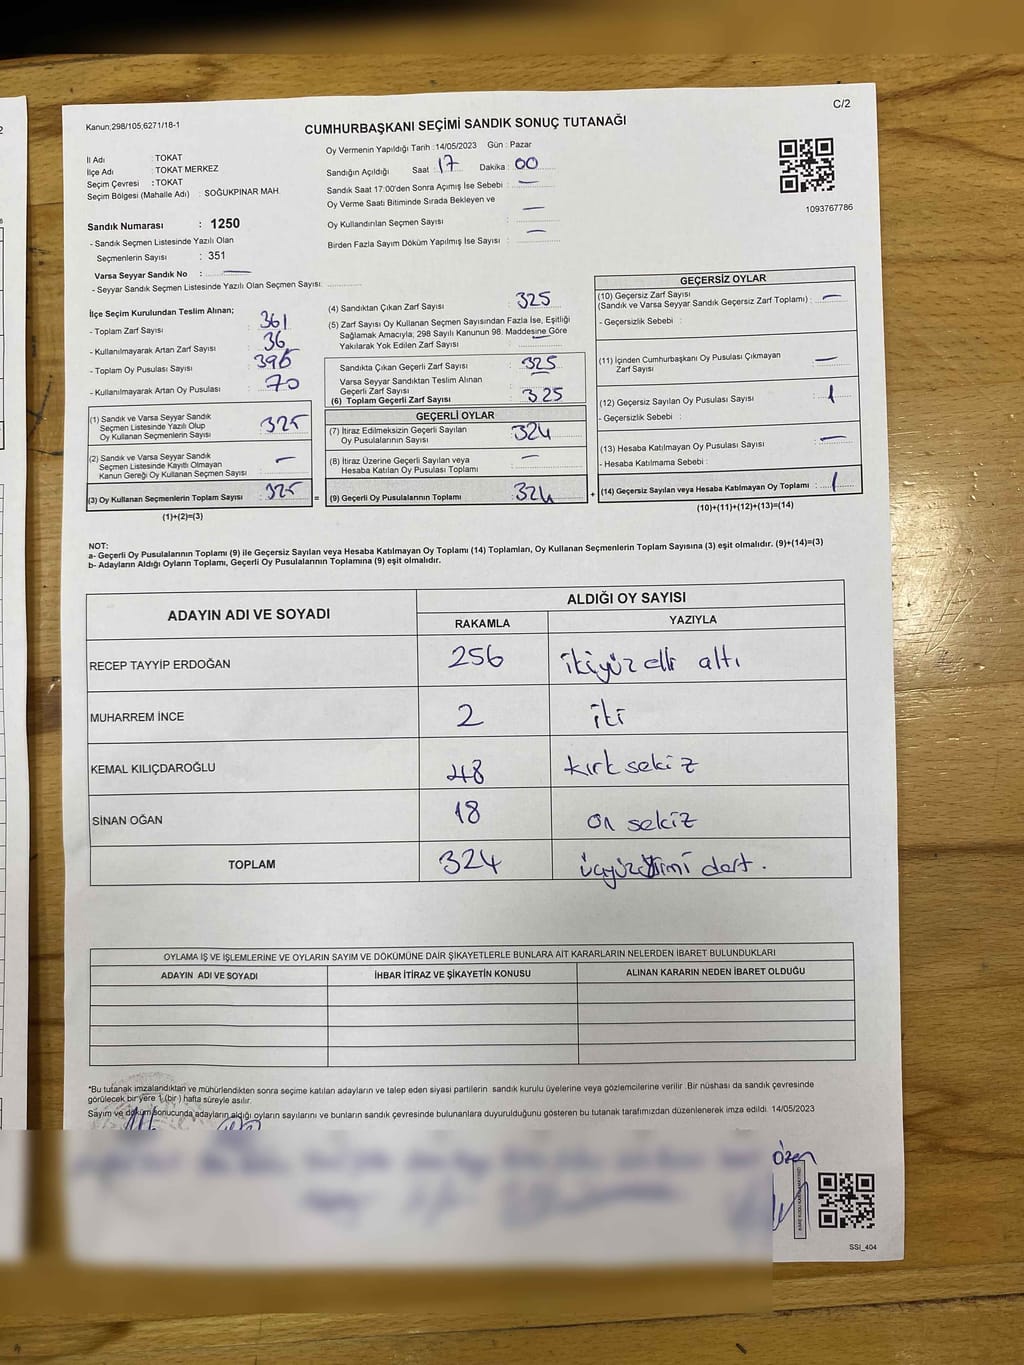 C/2
Kanun;298/105,6271/18-1
CUMHURBAŞKANI SEÇİMİ SANDIK SONUÇ TUTANAĞI
İl Adı : TOKAT
İlçe Adı : TOKAT MERKEZ
Seçim Çevresi : TOKAT
Seçim Bölgesi (Mahalle Adı) : SOĞUKPINAR MAH.
Sandık Numarası : 1250
- Sandık Seçmen Listesinde Yazılı Olan
Seçmenlerin Sayısı : 351
Varsa Seyyar Sandık No : —
- Seyyar Sandık Seçmen Listesinde Yazılı Olan Seçmen Sayısı:
Oy Vermenin Yapıldığı Tarih :14/05/2023 Gün : Pazar
Sandığın Açıldığı Saat : 17 Dakika : 00
Sandık Saat 17:00'den Sonra Açımış İse Sebebi : —
Oy Verme Saati Bitiminde Sırada Bekleyen ve
Oy Kullandırılan Seçmen Sayısı : —
Birden Fazla Sayım Döküm Yapılmış İse Sayısı : —
1093767786
İlçe Seçim Kurulundan Teslim Alınan;
- Toplam Zarf Sayısı : 361
- Kullanılmayarak Artan Zarf Sayısı : 36
- Toplam Oy Pusulası Sayısı : 396
- Kullanılmayarak Artan Oy Pusulası : 70
(1) Sandık ve Varsa Seyyar Sandık
Seçmen Listesinde Yazılı Olup
Oy Kullanan Seçmenlerin Sayısı : 325
(2) Sandık ve Varsa Seyyar Sandık
Seçmen Listesinde Kayıtlı Olmayan
Kanun Gereği Oy Kullanan Seçmen Sayısı : —
(3) Oy Kullanan Seçmenlerin Toplam Sayısı : 325 =
(1)+(2)=(3)
(4) Sandıktan Çıkan Zarf Sayısı : 325
(5) Zarf Sayısı Oy Kullanan Seçmen Sayısından Fazla İse, Eşitliği
Sağlamak Amacıyla; 298 Sayılı Kanunun 98. Maddesine Göre
Yakılarak Yok Edilen Zarf Sayısı : —
Sandıkta Çıkan Geçerli Zarf Sayısı : 325
Varsa Seyyar Sandıktan Teslim Alınan
Geçerli Zarf Sayısı : —
(6) Toplam Geçerli Zarf Sayısı : 325
GEÇERLİ OYLAR
(7) İtiraz Edilmeksizin Geçerli Sayılan
Oy Pusulalarının Sayısı : 324
(8) İtiraz Üzerine Geçerli Sayılan veya
Hesaba Katılan Oy Pusulası Toplamı : —
(9) Geçerli Oy Pusulalarının Toplamı : 324 +
GEÇERSİZ OYLAR
(10) Geçersiz Zarf Sayısı : —
(Sandık ve Varsa Seyyar Sandık Geçersiz Zarf Toplamı)
- Geçersizlik Sebebi :
(11) İçinden Cumhurbaşkanı Oy Pusulası Çıkmayan
Zarf Sayısı : —
(12) Geçersiz Sayılan Oy Pusulası Sayısı : 1
- Geçersizlik Sebebi :
(13) Hesaba Katılmayan Oy Pusulası Sayısı : —
- Hesaba Katılmama Sebebi :
(14) Geçersiz Sayılan veya Hesaba Katılmayan Oy Toplamı : 1
(10)+(11)+(12)+(13)=(14)
NOT:
a- Geçerli Oy Pusulalarının Toplamı (9) ile Geçersiz Sayılan veya Hesaba Katılmayan Oy Toplamı (14) Toplamları, Oy Kullanan Seçmenlerin Toplam Sayısına (3) eşit olmalıdır. (9)+(14)=(3)
b- Adayların Aldığı Oyların Toplamı, Geçerli Oy Pusulalarının Toplamına (9) eşit olmalıdır.
ADAYIN ADI VE SOYADI
ALDIĞI OY SAYISI
RAKAMLA YAZIYLA
RECEP TAYYİP ERDOĞAN 256 ikiyüz elli altı
MUHARREM İNCE 2 iki
KEMAL KILIÇDAROĞLU 48 kırk sekiz
SİNAN OĞAN 18 on sekiz
TOPLAM 324 üçyüzyirmi dört.
OYLAMA İŞ VE İŞLEMLERİNE VE OYLARIN SAYIM VE DÖKÜMÜNE DAİR ŞİKAYETLERLE BUNLARA AİT KARARLARIN NELERDEN İBARET BULUNDUKLARI
ADAYIN ADI VE SOYADI İHBAR İTİRAZ VE ŞİKAYETİN KONUSU ALINAN KARARIN NEDEN İBARET OLDUĞU
*Bu tutanak imzalandıktan ve mühürlendikten sonra seçime katılan adayların ve talep eden siyasi partilerin sandık kurulu üyelerine veya gözlemcilerine verilir. Bir nüshası da sandık çevresinde
görülecek bir yere 1 (bir) hafta süreyle asılır.
Sayım ve döküm sonucunda adayların aldığı oyların sayılarını ve bunların sandık çevresinde bulunanlara duyurulduğunu gösteren bu tutanak tarafımızdan düzenlenerek imza edildi. 14/05/2023
Özen
SSI_404